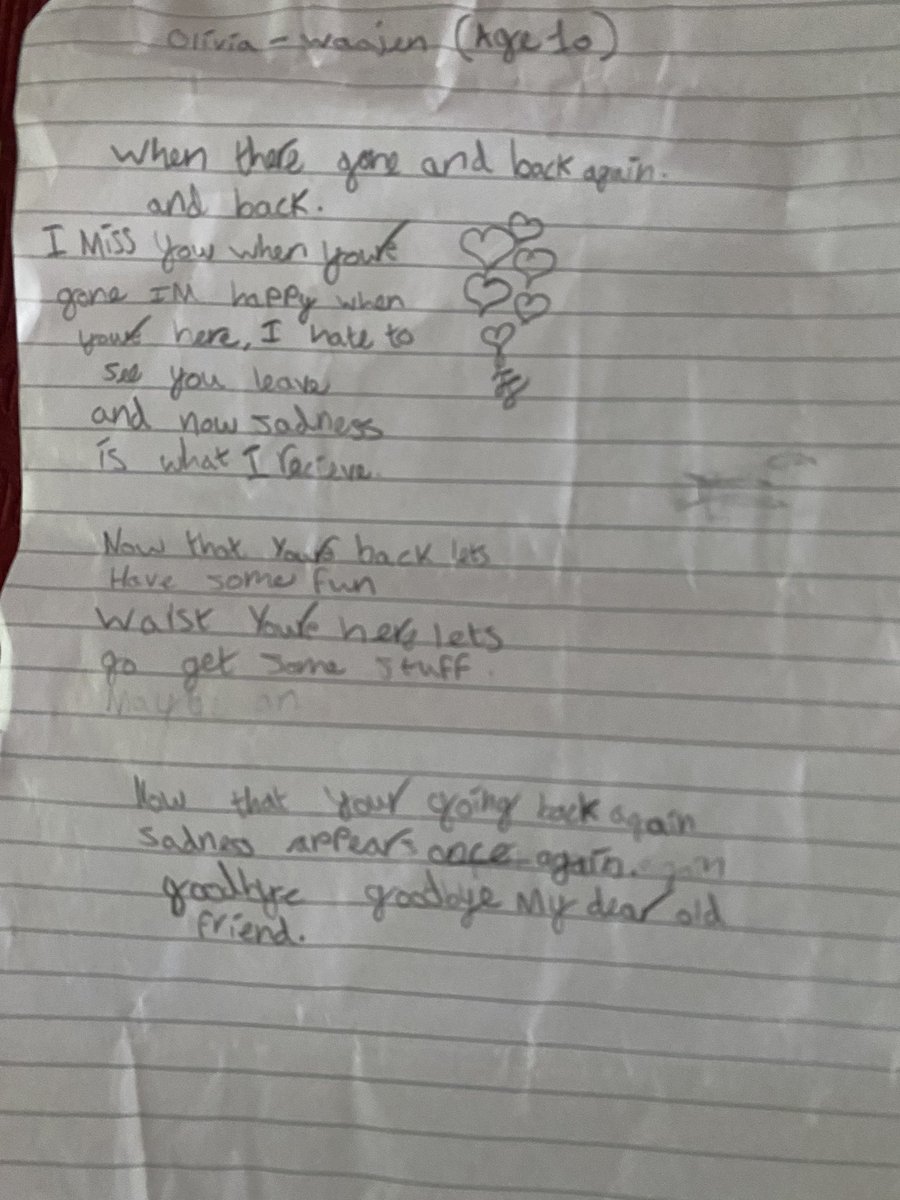 Olivia - Waajen (Age 10)
When there gone and back again.
and back.
I Miss you when your
gone IM happy when
your here, I hate to
see you leave
and now sadness
is what I recieve.
Now that your back lets
Have some fun
Walst your here lets
go get some stuff.
Maybe an
Now that your going back again
Sadness appears once again.
goodbye goodbye My dear old
friend.